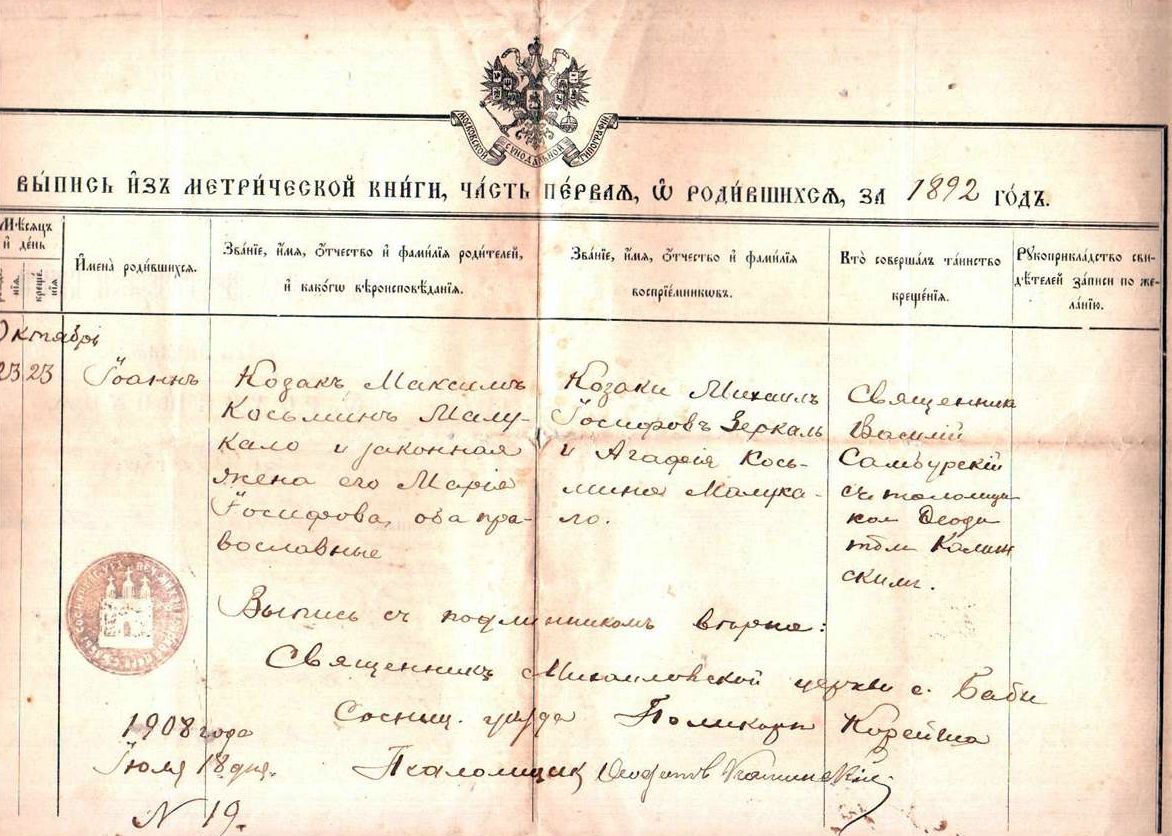 МОСКОВСКОЙ СѴНОДАЛЬНОЙ ТИПОГРАФІИ
ВЫ́ПИСЬ И҆ЗЪ МЕТРИ́ЧЕСКОЙ КНИ́ГИ, ЧА́СТЬ ПЕ́РВАѦ, Ѡ҆ РОДИ́ВШИХСѦ, ЗА 1892 ГО́ДЪ.
Мѣ́сѧцъ
и҆ де́нь
креще́
нїѧ
И҆мена̀ роди́вшихсѧ.
Зва́нїе, и҆́мѧ, ѻ҆́тчество и҆ фами́лїѧ роди́телей,
и҆ како́гѡ вѣроисповѣ́данїѧ.
Зва́нїе, и҆́мѧ, ѻ҆́тчество и҆ фами́лїѧ
воспрїе́мникѡвъ.
Кто̀ соверша́лъ та́инство
креще́нїѧ.
Рꙋкоприкла́дство сви-
дѣ́телей за́писи по же-
ла́нїю.
Октябрь
23 23
Іоаннъ
Козакъ Максимъ
Косьминъ Малу-
кало и законная
жена его Марія
Іосифова, оба пра-
вославные
Козаки Михаилъ
Іосифовъ Зеркаль
и Агафія Кось-
мина Малука-
ло.
Священник
Василій
Самбурскій
съ псаломщи
ком Ѳеодо
том Калин
скимъ.
Выпись съ подлинником вѣрна:
Священникъ Михаиловской церкви с. Баби
Сосниц. уезда Поликарп Корейша
1908 года
Іюля 18 дня.
Псаломщик Ѳеодотов Калинскій.
N 19.